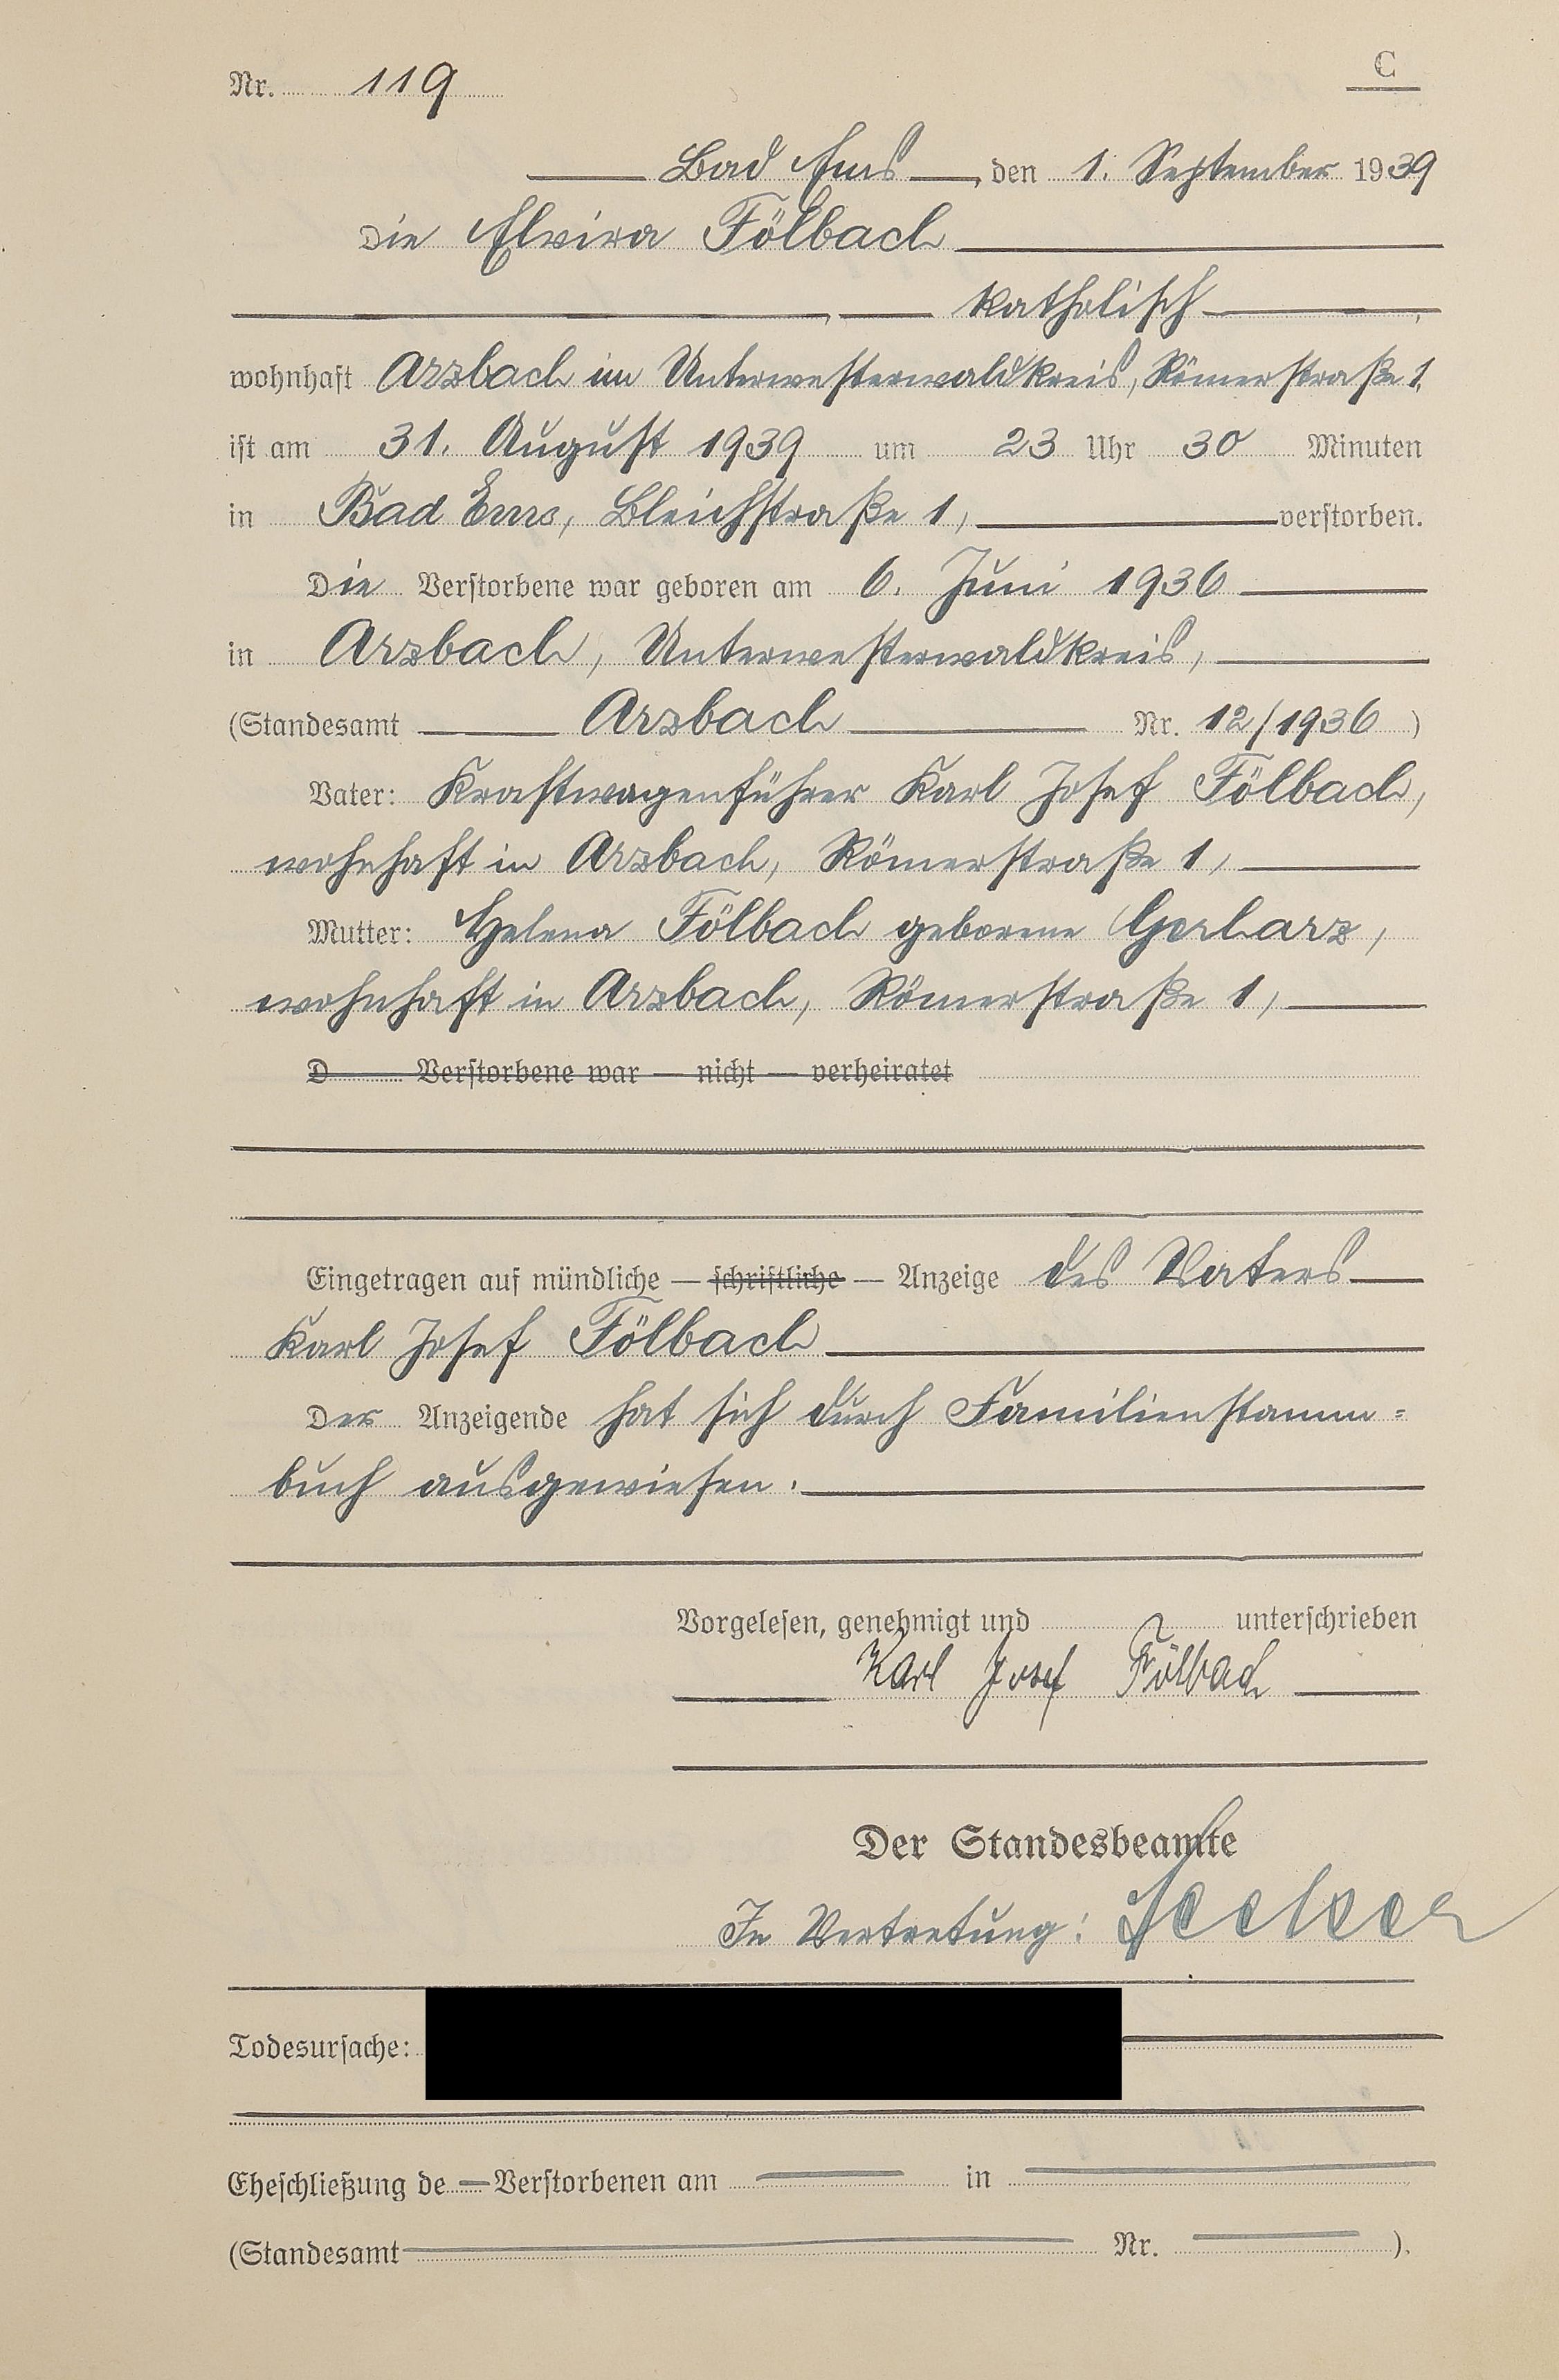 Nr. 119
C
Bad Ems, den 1. September 1939
Die Elvira Fölbach
, katholisch,
wohnhaft Arzbach im Unterwesterwaldkreis, Römerstraße 1,
ist am 31. August 1939 um 23 Uhr 30 Minuten
in Bad Ems, Bleichstraße 1, verstorben.
Die Verstorbene war geboren am 6. Juni 1936
in Arzbach, Unterwesterwaldkreis,
(Standesamt Arzbach Nr. 12/1936)
Vater: Kraftwagenführer Karl Josef Fölbach,
wohnhaft in Arzbach, Römerstraße 1,
Mutter: Helena Fölbach geborene Gerharz,
wohnhaft in Arzbach, Römerstraße 1,
D Verstorbene war — nicht — verheiratet
Eingetragen auf mündliche — schriftliche — Anzeige des Vaters
Karl Josef Fölbach
Der Anzeigende hat sich durch Familienstamm=
buch ausgewiesen.
Vorgelesen, genehmigt und unterschrieben
Karl Josef Fölbach
Der Standesbeamte
In Vertretung:
Todesursache:
Eheschließung de Verstorbenen am in
(Standesamt Nr. ).